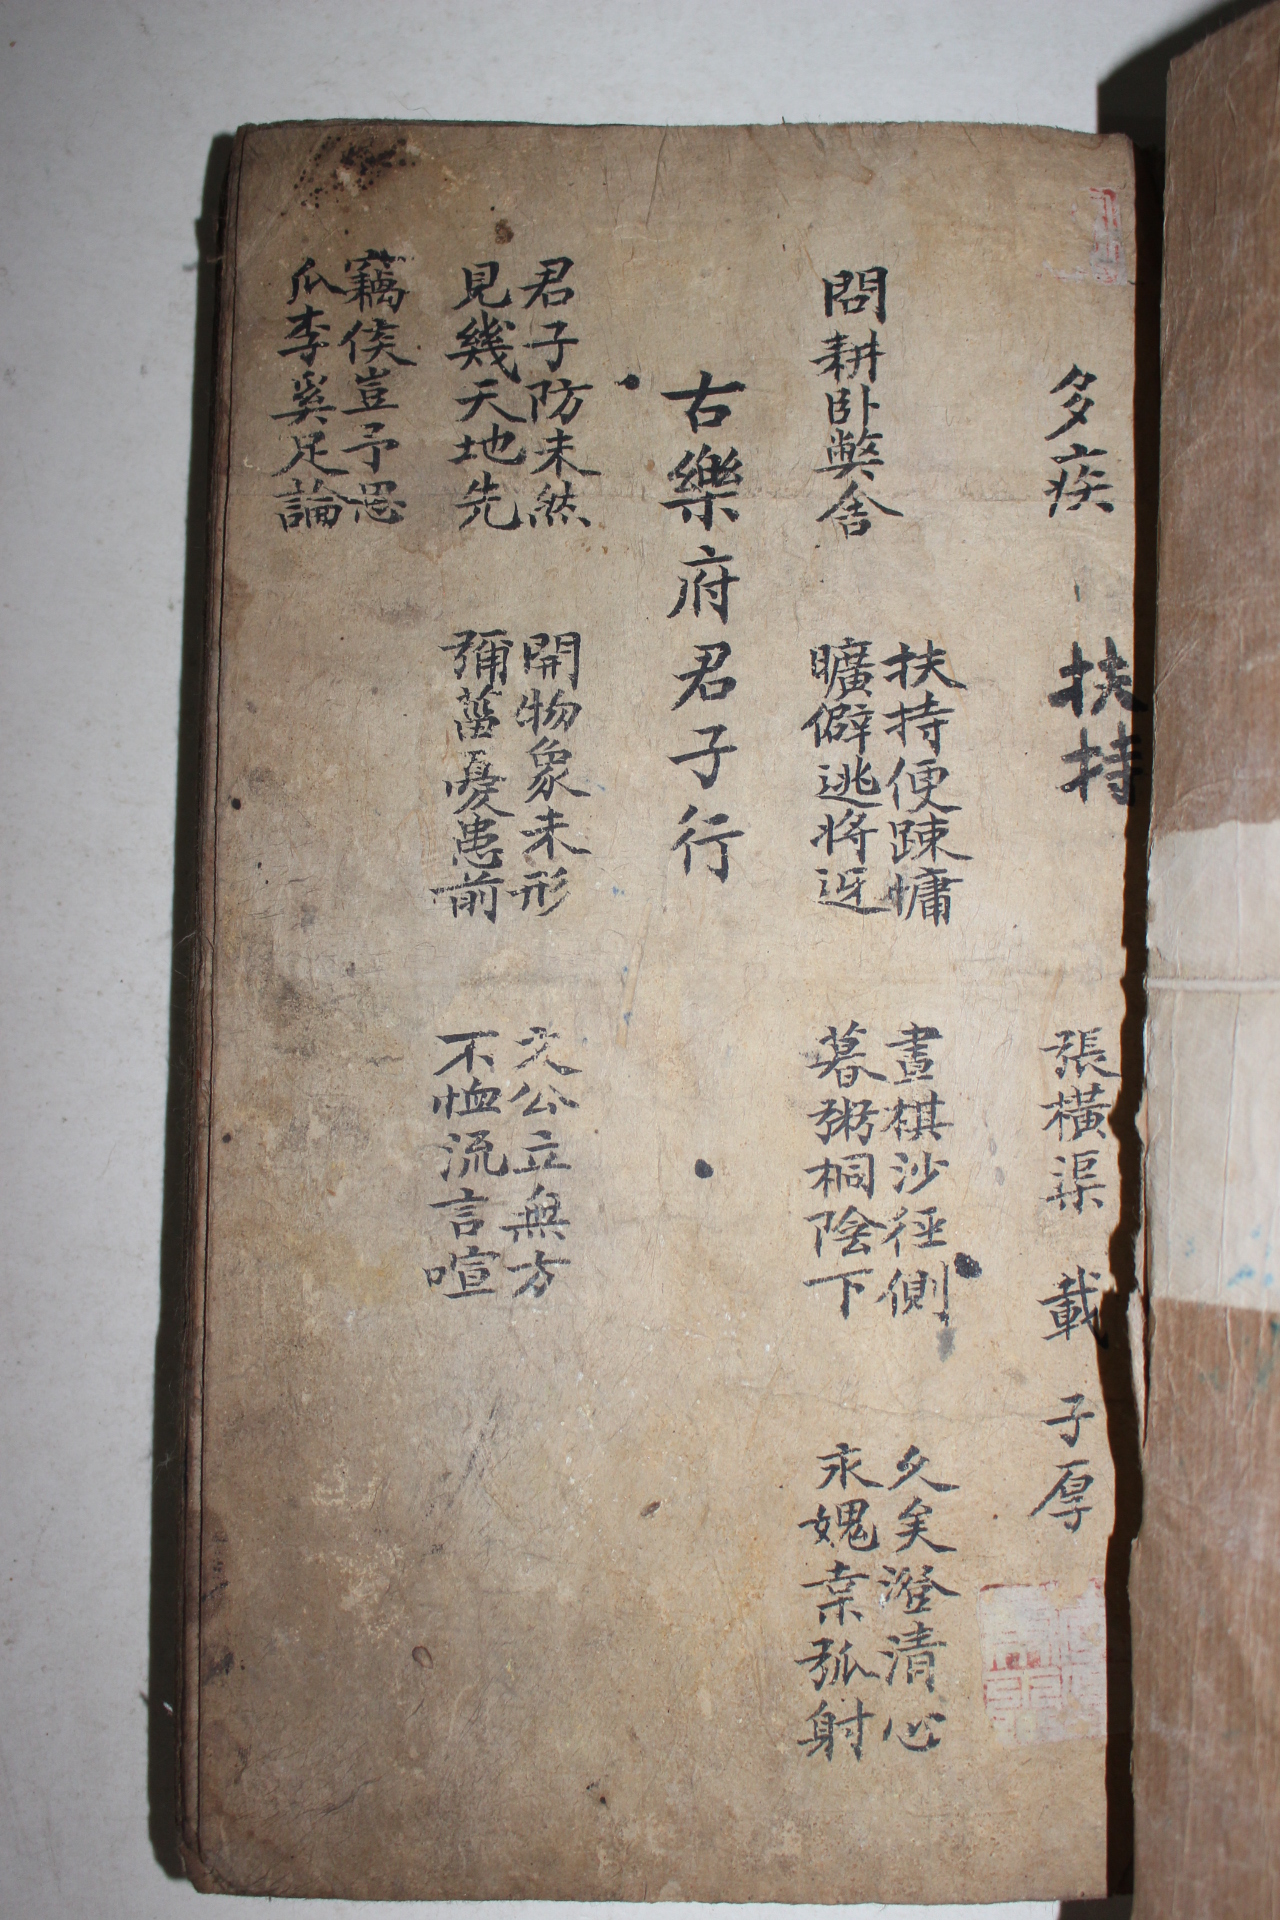 多疾 扶持 張橫渠 載 子厚
問耕卧弊舍
扶持便踈慵
曠僻逃將迓
晝棋沙徑側
暮粥桐陰下
久矣澄清心
永媿桒弧射
古樂府君子行
君子防未然
見幾天地先
開物象未形
彌菑憂患前
文公立無方
不恤流言喧
竊侯豈予思
瓜李奚足論